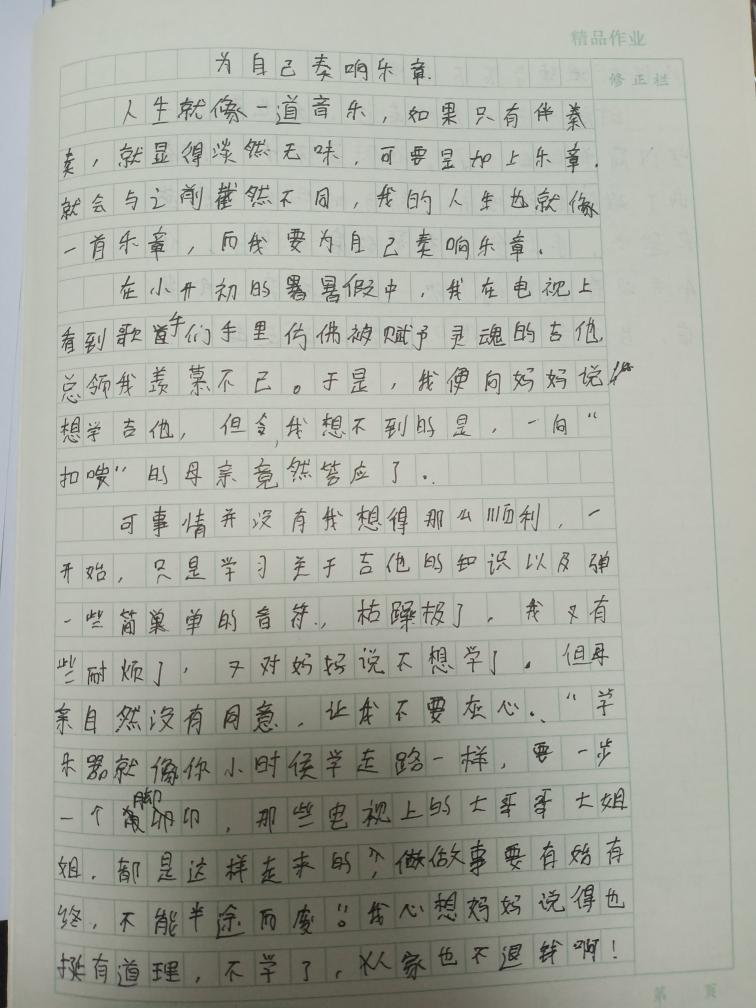 精品作业
修正栏
为自己奏响乐章.
人生就像一道音乐，如果只有伴奏
奏，就显得淡然无味，可要是加上乐章.
就会与之前截然不同，我的人生也就像
一首乐章，而我要为自己奏响乐章.
在小升初的暑假中，我在电视上
看到歌手们手里仿佛被赋予灵魂的吉他
总领我羡慕不已。于是，我便向妈妈说
想学吉他，但令我想不到的是，一向“
扣唆”的母亲竟然答应了.
可事情并没有我想得那么顺利，一
开始，只是学习关于吉他的知识以及弹
一些简单的音符，枯躁极了，我又有
些耐烦了，又对妈妈说不想学了.但母
亲自然没有同意，让我不要灰心.“学
乐器就像你小时侯学走路一样，要一步
一个脚印，那些电视上的大哥哥大姐
姐，都是这样走来的，做事要有始有
终，不能半途而废”。我心想妈妈说得也
挺有道理，不学了，人家也不退钱啊！
第 页